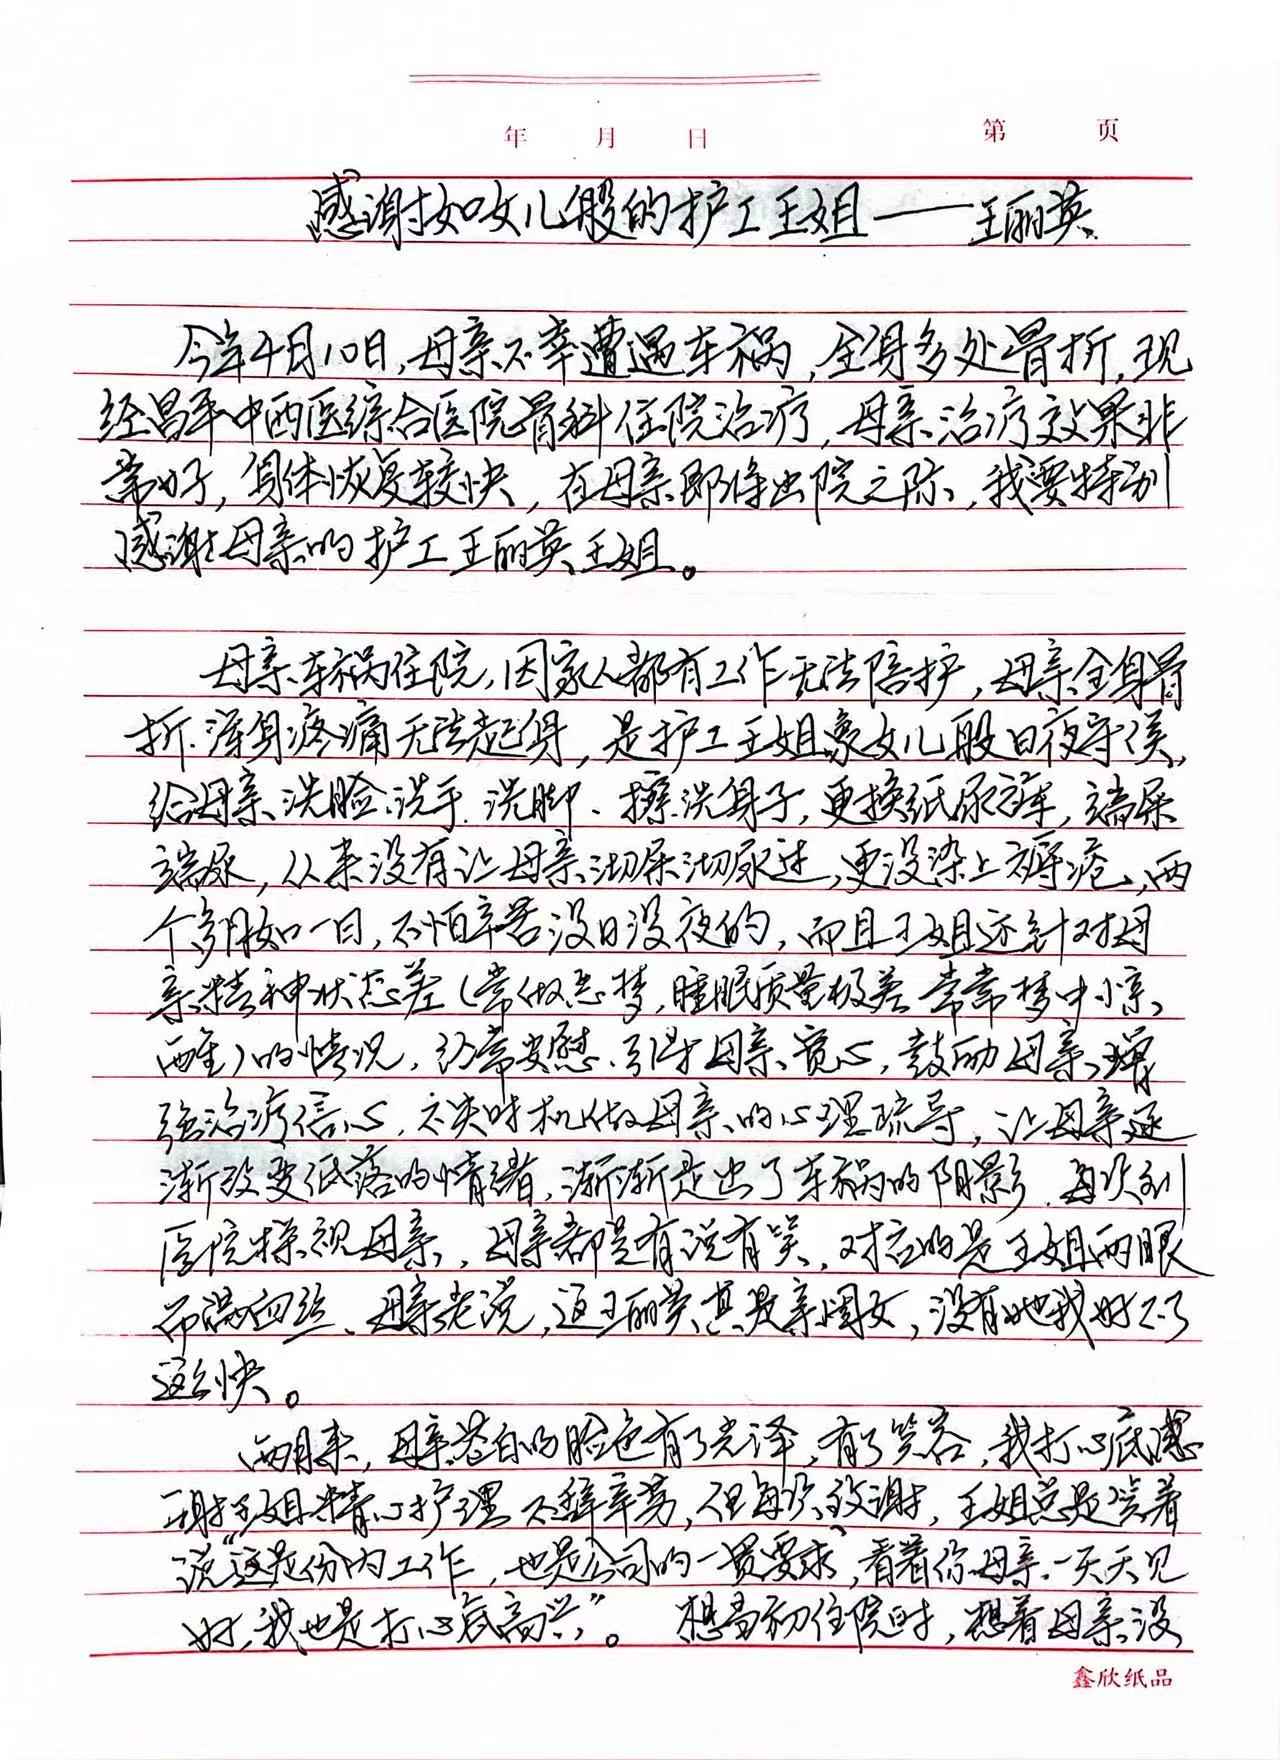 年 月 日 第 页
感谢如女儿般的护工王姐——王丽英
今年4月10日,母亲不幸遭遇车祸,全身多处骨折,现
经昌平中西医综合医院骨科住院治疗,母亲治疗效果非
常好,身体恢复较快,在母亲即将出院之际,我要特别
感谢母亲的护工王丽英王姐。
母亲车祸住院,因家人都有工作无法陪护,母亲全身骨
折、浑身疼痛无法起身,是护工王姐象女儿般日夜守候,
给母亲洗脸、洗手、洗脚、擦洗身子,更换纸尿裤,端屎
端尿,从来没有让母亲沏屎沏尿过,更没染上褥疮,两
个多月如一日,不怕辛苦没日没夜的,而且王姐还针对母
亲精神状态差(常做恶梦,睡眠质量极差常常梦中惊
醒)的情况,经常安慰、引导母亲宽心,鼓励母亲增
强治疗信心,不失时机做母亲的心理疏导,让母亲逐
渐改变低落的情绪,渐渐走出了车祸的阴影,每次到
医院探视母亲,母亲都是有说有笑,对应的是王姐两眼
布满血丝、母亲老说,这王丽英真是亲闺女,没有她我好不了
这么快。
两月来,母亲苍白的脸色有了光泽,有了笑容,我打心底感
谢王姐精心护理不辞辛劳,但每次致谢,王姐总是笑着
说“这是份内工作,也是公司的一贯要求”,看着你母亲一天天见
好,我也是打心底高兴”。 想当初住院时,想着母亲没
鑫欣纸品